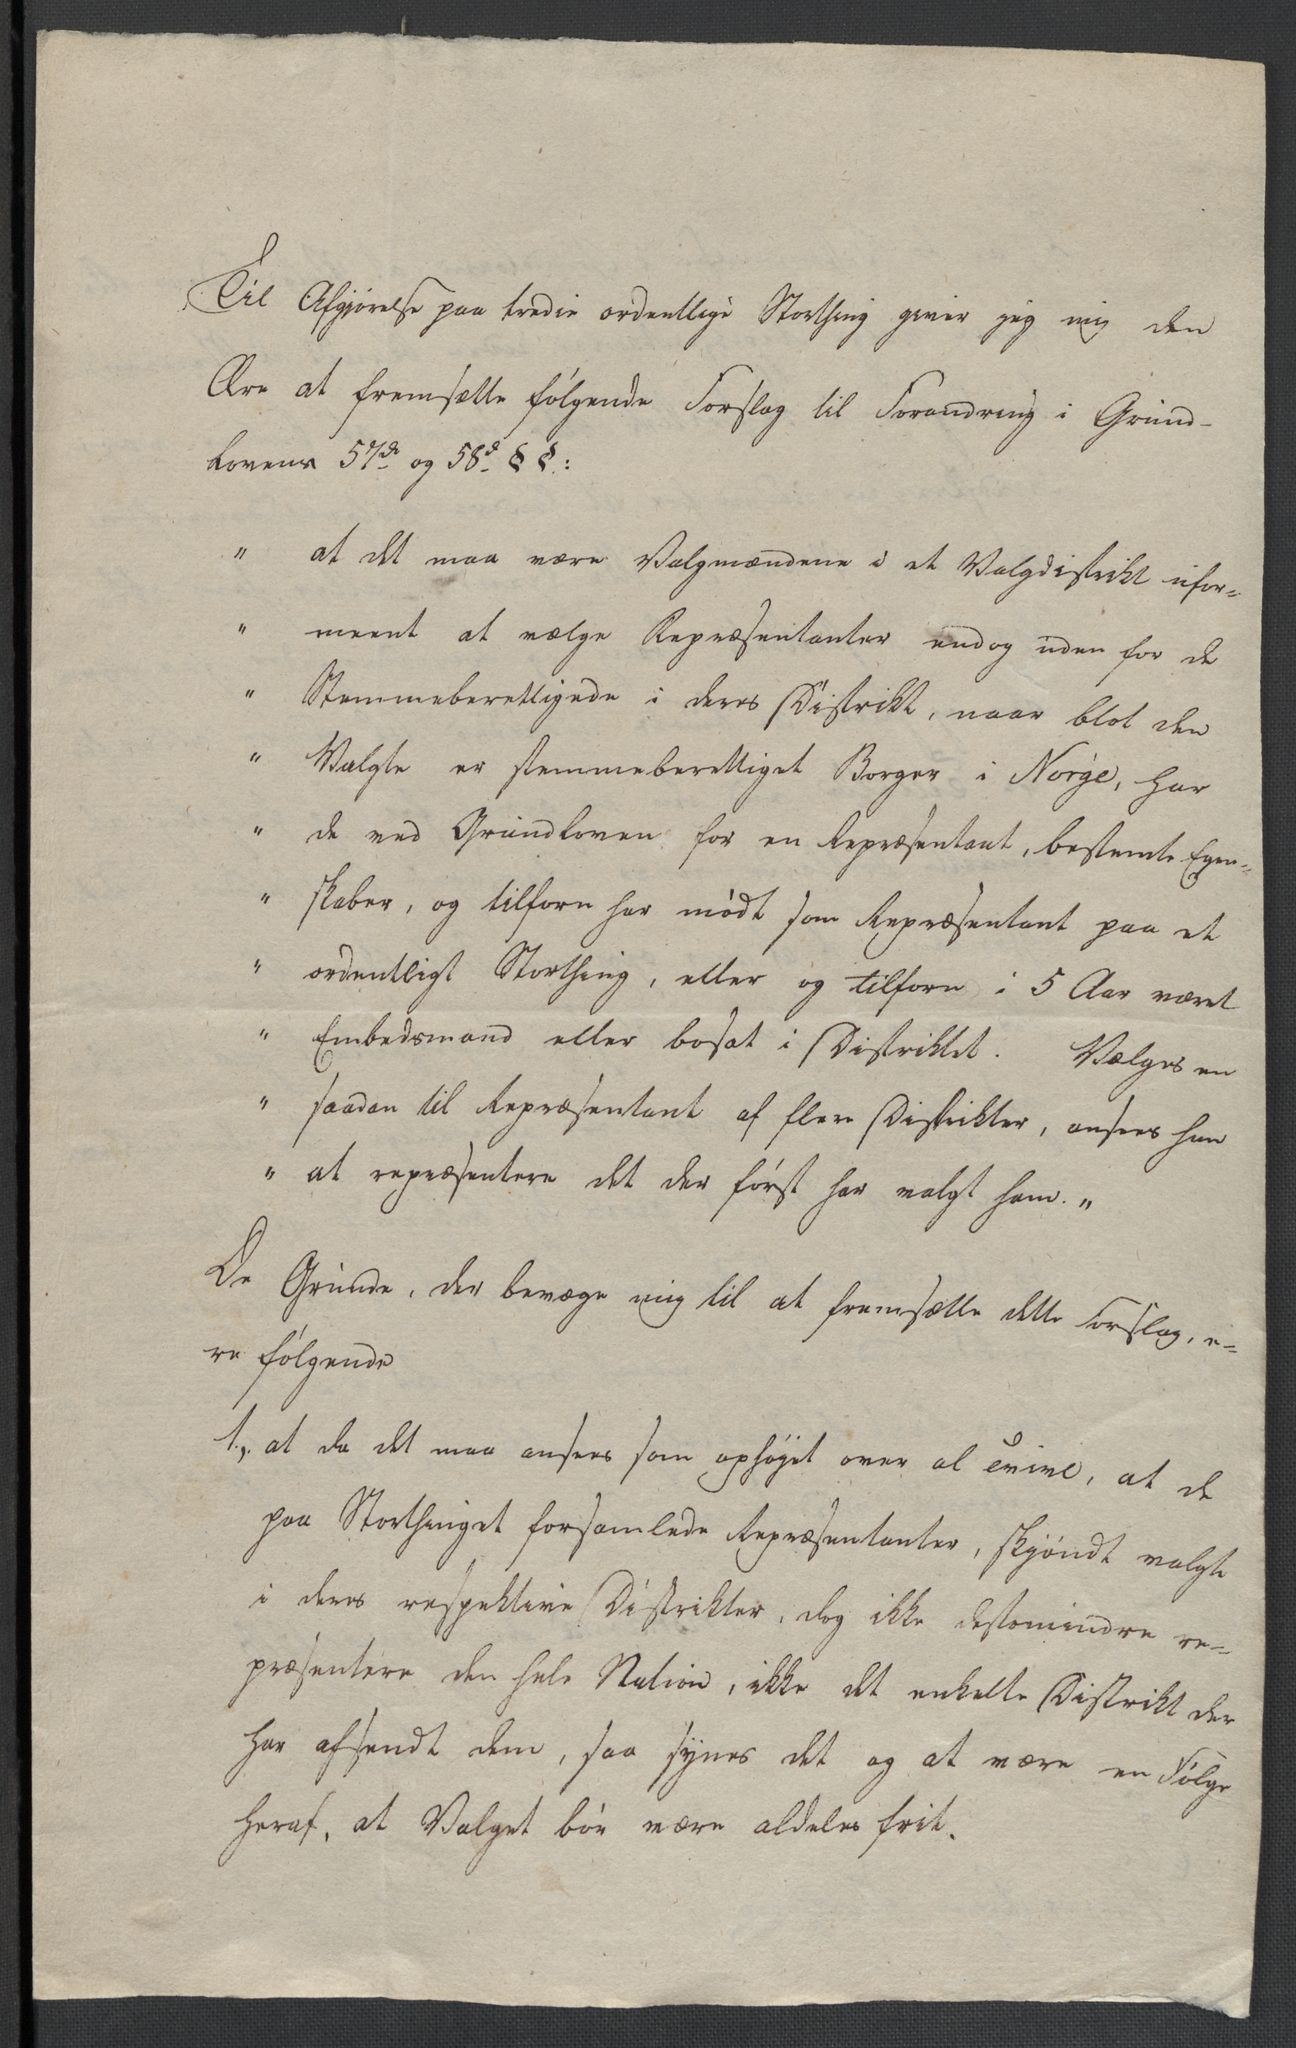 Til Afgjørelse paa tredie ordentlige Storthing giver jeg mig den
Ære at fremsætte følgende Forslag til Forandring i Grund-
lovens 57de og 58d § §:
" at det maa være Valgmændene i et Valgdistrikt ufor-
" meent at vælge Repræsentanter endog uden for de
" Stemmeberettigede i deres Distrikt, naar blot den
" Valgte er stemmeberettiget Borger i Norge, har
" de ved Grundloven for en Repræsentant, bestemte Egen-
" skaber, og tilforn har mødt som Repræsentant paa et
" ordentligt Storthing, eller og tilforn i 5 Aar været
" Embedsmand eller bosat i Distriktet. Vælges en
" saadan til Repræsentant af flere Distrikter, ansees han
" at repræsentere det der først har valgt ham. "
De Grunde, der bevæge mig til at fremsætte dette Forslag, e-
re følgende
1., at da det maa ansees som ophøjet over al Tvivl, at de
paa Storthinget forsamlede Repræsentanter, skjøndt valgte
i deres respektive Distrikter, dog ikke destomindre re-
præsentere den hele Nation, ikke det enkelte Distrikt der
har afsendt dem, saa synes det og at være en Følge
heraf, at Valget bør være aldeles frit.